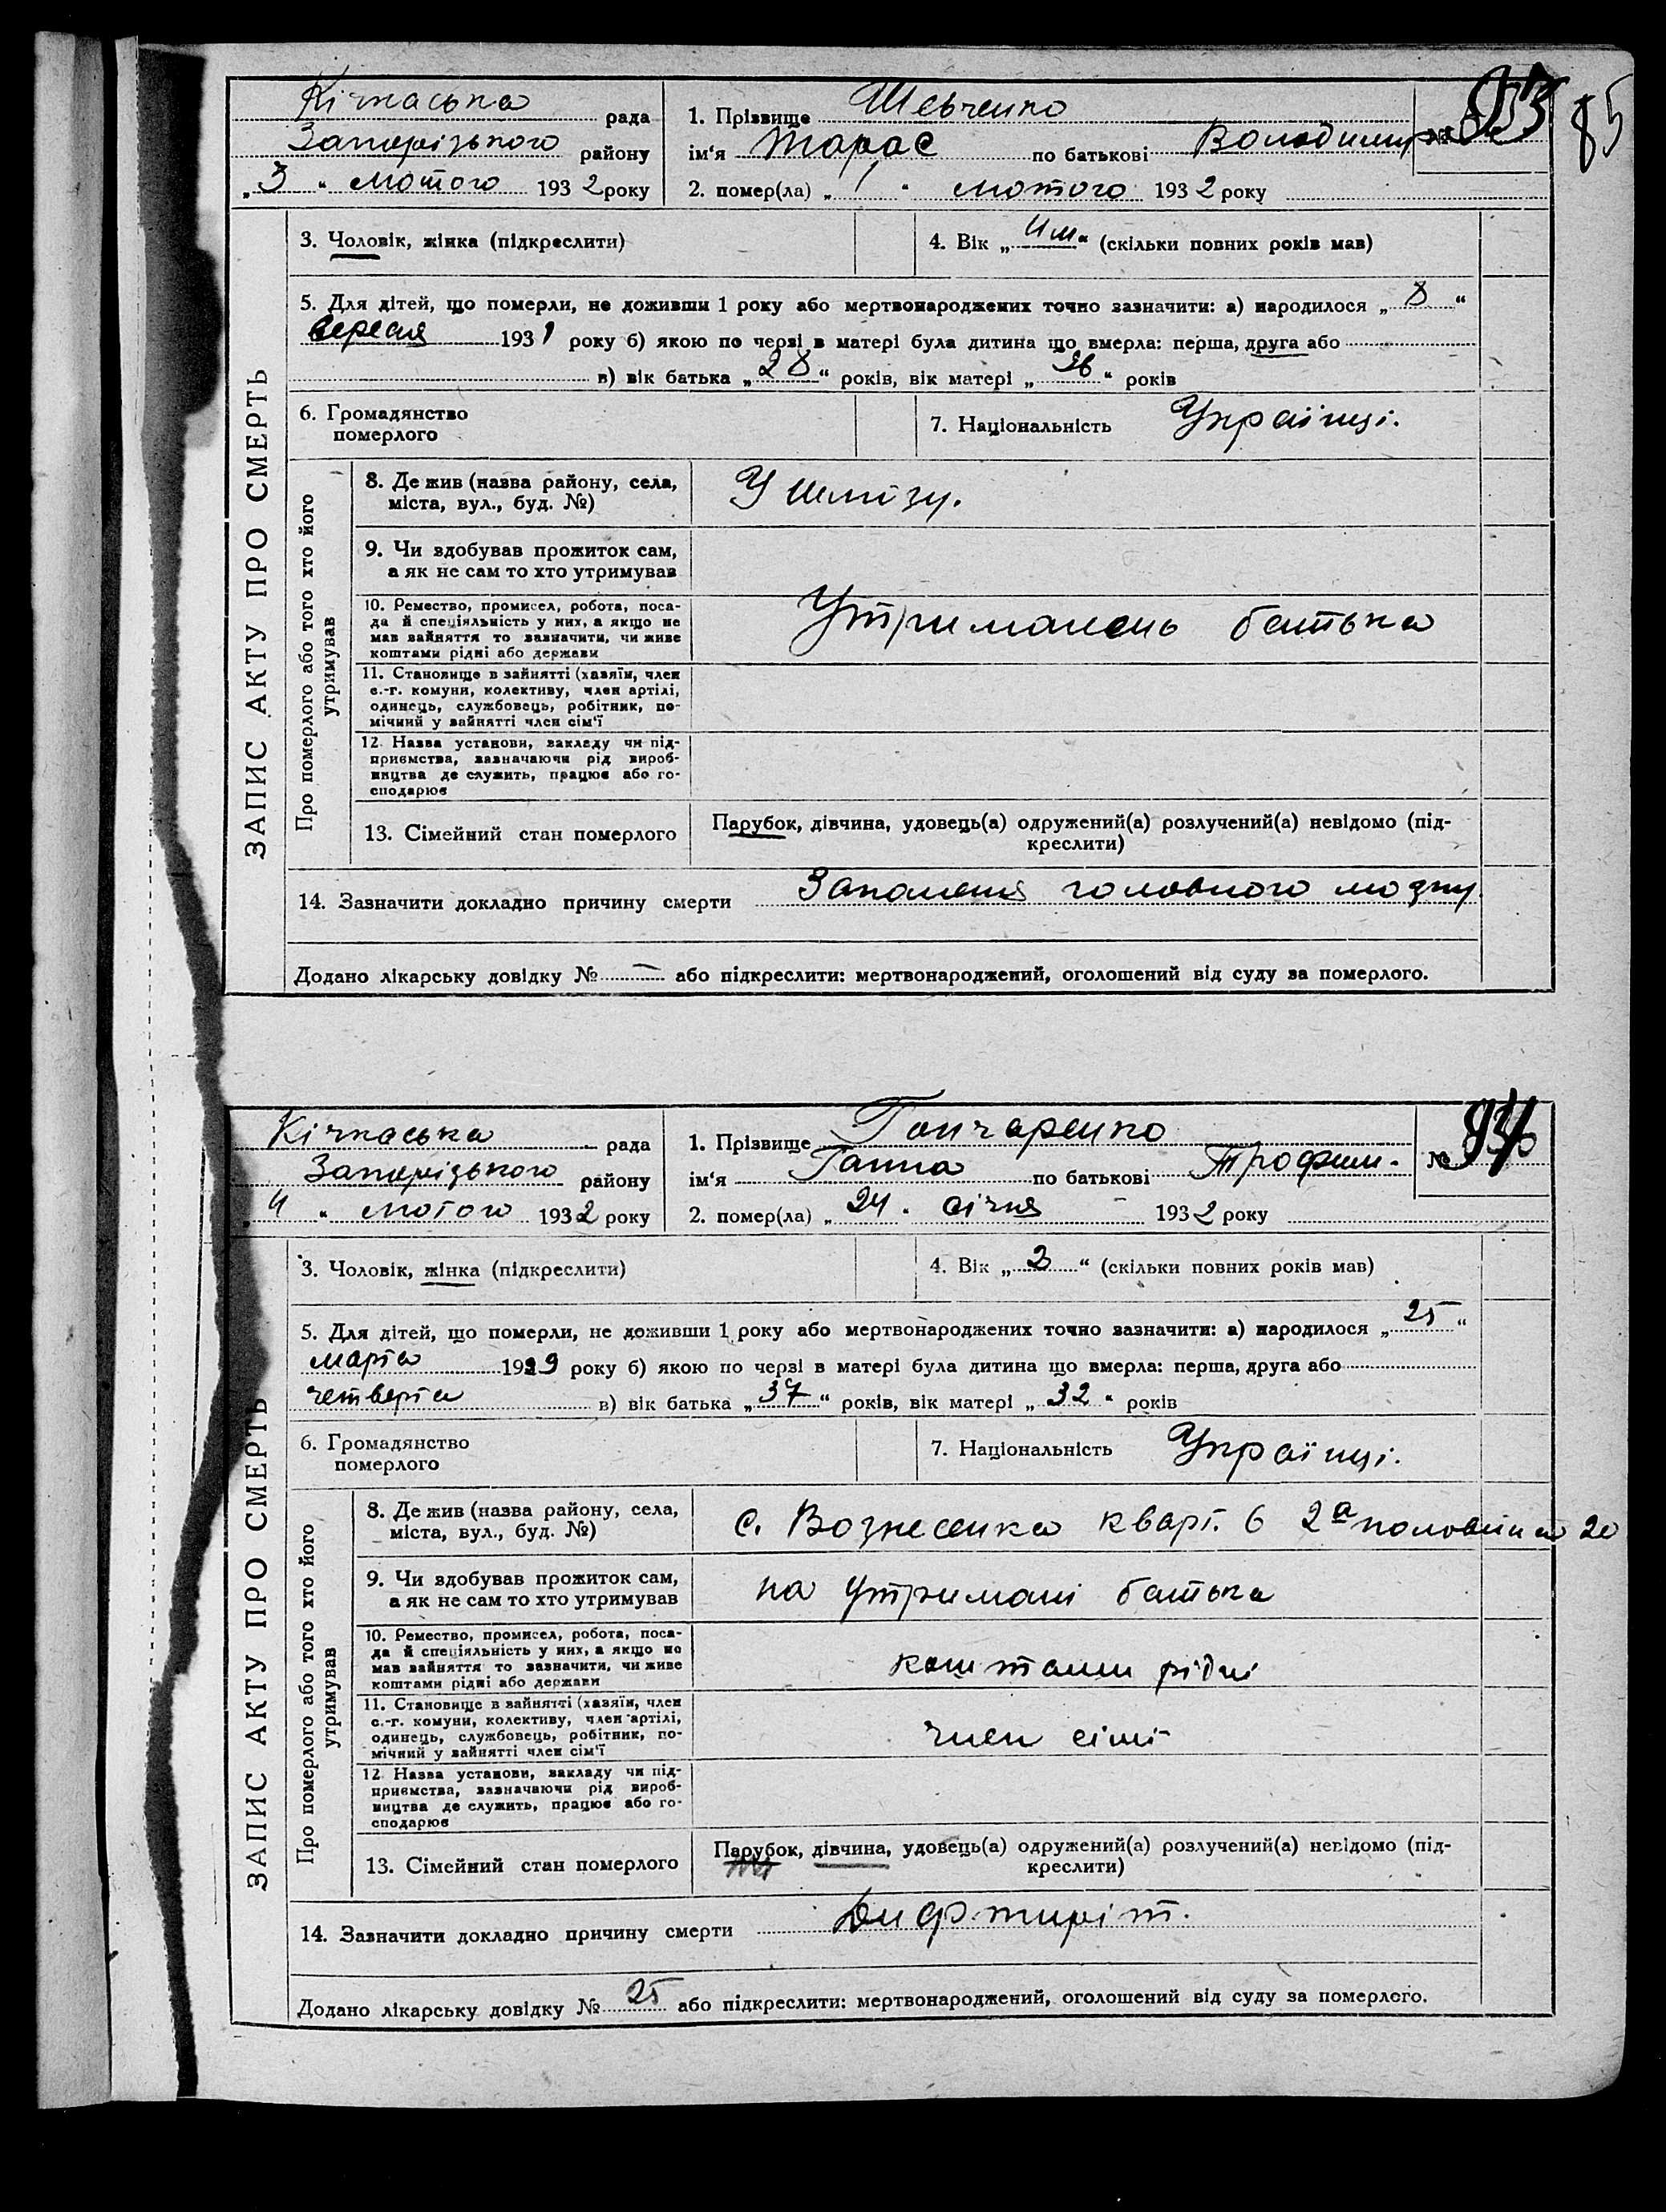 85
Кічкаська рада
Запорізького району
„3“ лютого 1932 року
1. Прізвище Шевченко
ім‘я Тарас по батькові Володимир
№ 93
2. помер(ла) „1“ лютого 1932 року
ЗАПИС АКТУ ПРО СМЕРТЬ
3. Чоловік, жінка (підкреслити)
4. Вік „4 м“ (скільки повних років мав)
5. Для дітей, що померли, не доживши 1 року або мертвонароджених точно зазначити: а) народилося „8“
вересня 1931 року б) якою по черзі в матері була дитина що вмерла: перша, друга або
в) вік батька „28“ років, вік матері „26“ років
6. Громадянство
померлого
7. Національність Українці.
Про померлого або того хто його
утримував
8. Де жив (назва району, села,
міста, вул., буд. №)
У шлюзу.
9. Чи здобував прожиток сам,
а як не сам то хто утримував
10. Ремество, промисел, робота, поса-
да й спеціяльність у них, а якщо не
мав зайняття то зазначити, чи живе
коштами рідні або держави
Утриманець батька
11. Становище в зайнятті (хазяїн, член
с.-г. комуни, колективу, член артілі,
одинець, службовець, робітник, по-
мічний у зайнятті член сім‘ї
12. Назва установи, закладу чи під-
приємства, зазначаючи рід вироб-
ництва де служить, працює або го-
сподарює
13. Сімейний стан померлого
Парубок, дівчина, удовець(а) одружений(а) розлучений(а) невідомо (під-
креслити)
14. Зазначити докладно причину смерти Запаленя головного мозку.
Додано лікарську довідку № — або підкреслити: мертвонароджений, оголошений від суду за померлого.
Кічкаська рада
Запорізького району
„4“ лютого 1932 року
1. Прізвище Гончаренко
ім‘я Ганна по батькові Трофим.
№ 94
2. помер(ла) „24“ січня 1932 року
ЗАПИС АКТУ ПРО СМЕРТЬ
3. Чоловік, жінка (підкреслити)
4. Вік „2“ (скільки повних років мав)
5. Для дітей, що померли, не доживши 1 року або мертвонароджених точно зазначити: а) народилося „25“
марта 1929 року б) якою по черзі в матері була дитина що вмерла: перша, друга або
четверта в) вік батька „37“ років, вік матері „32“ років
6. Громадянство
померлого
7. Національність Українці.
Про померлого або того хто його
утримував
8. Де жив (назва району, села,
міста, вул., буд. №)
с. Вознесенка кварт. 6 2а половина 20
9. Чи здобував прожиток сам,
а як не сам то хто утримував
на утримані батька
10. Ремество, промисел, робота, поса-
да й спеціяльність у них, а якщо не
мав зайняття то зазначити, чи живе
коштами рідні або держави
коштами рідні
11. Становище в зайнятті (хазяїн, член
с.-г. комуни, колективу, член артілі,
одинець, службовець, робітник, по-
мічний у зайнятті член сім‘ї
член сімї
12. Назва установи, закладу чи під-
приємства, зазначаючи рід вироб-
ництва де служить, працює або го-
сподарює
13. Сімейний стан померлого
Парубок, дівчина, удовець(а) одружений(а) розлучений(а) невідомо (під-
креслити)
14. Зазначити докладно причину смерти Дифтиріт.
Додано лікарську довідку № 25 або підкреслити: мертвонароджений, оголошений від суду за померлого.